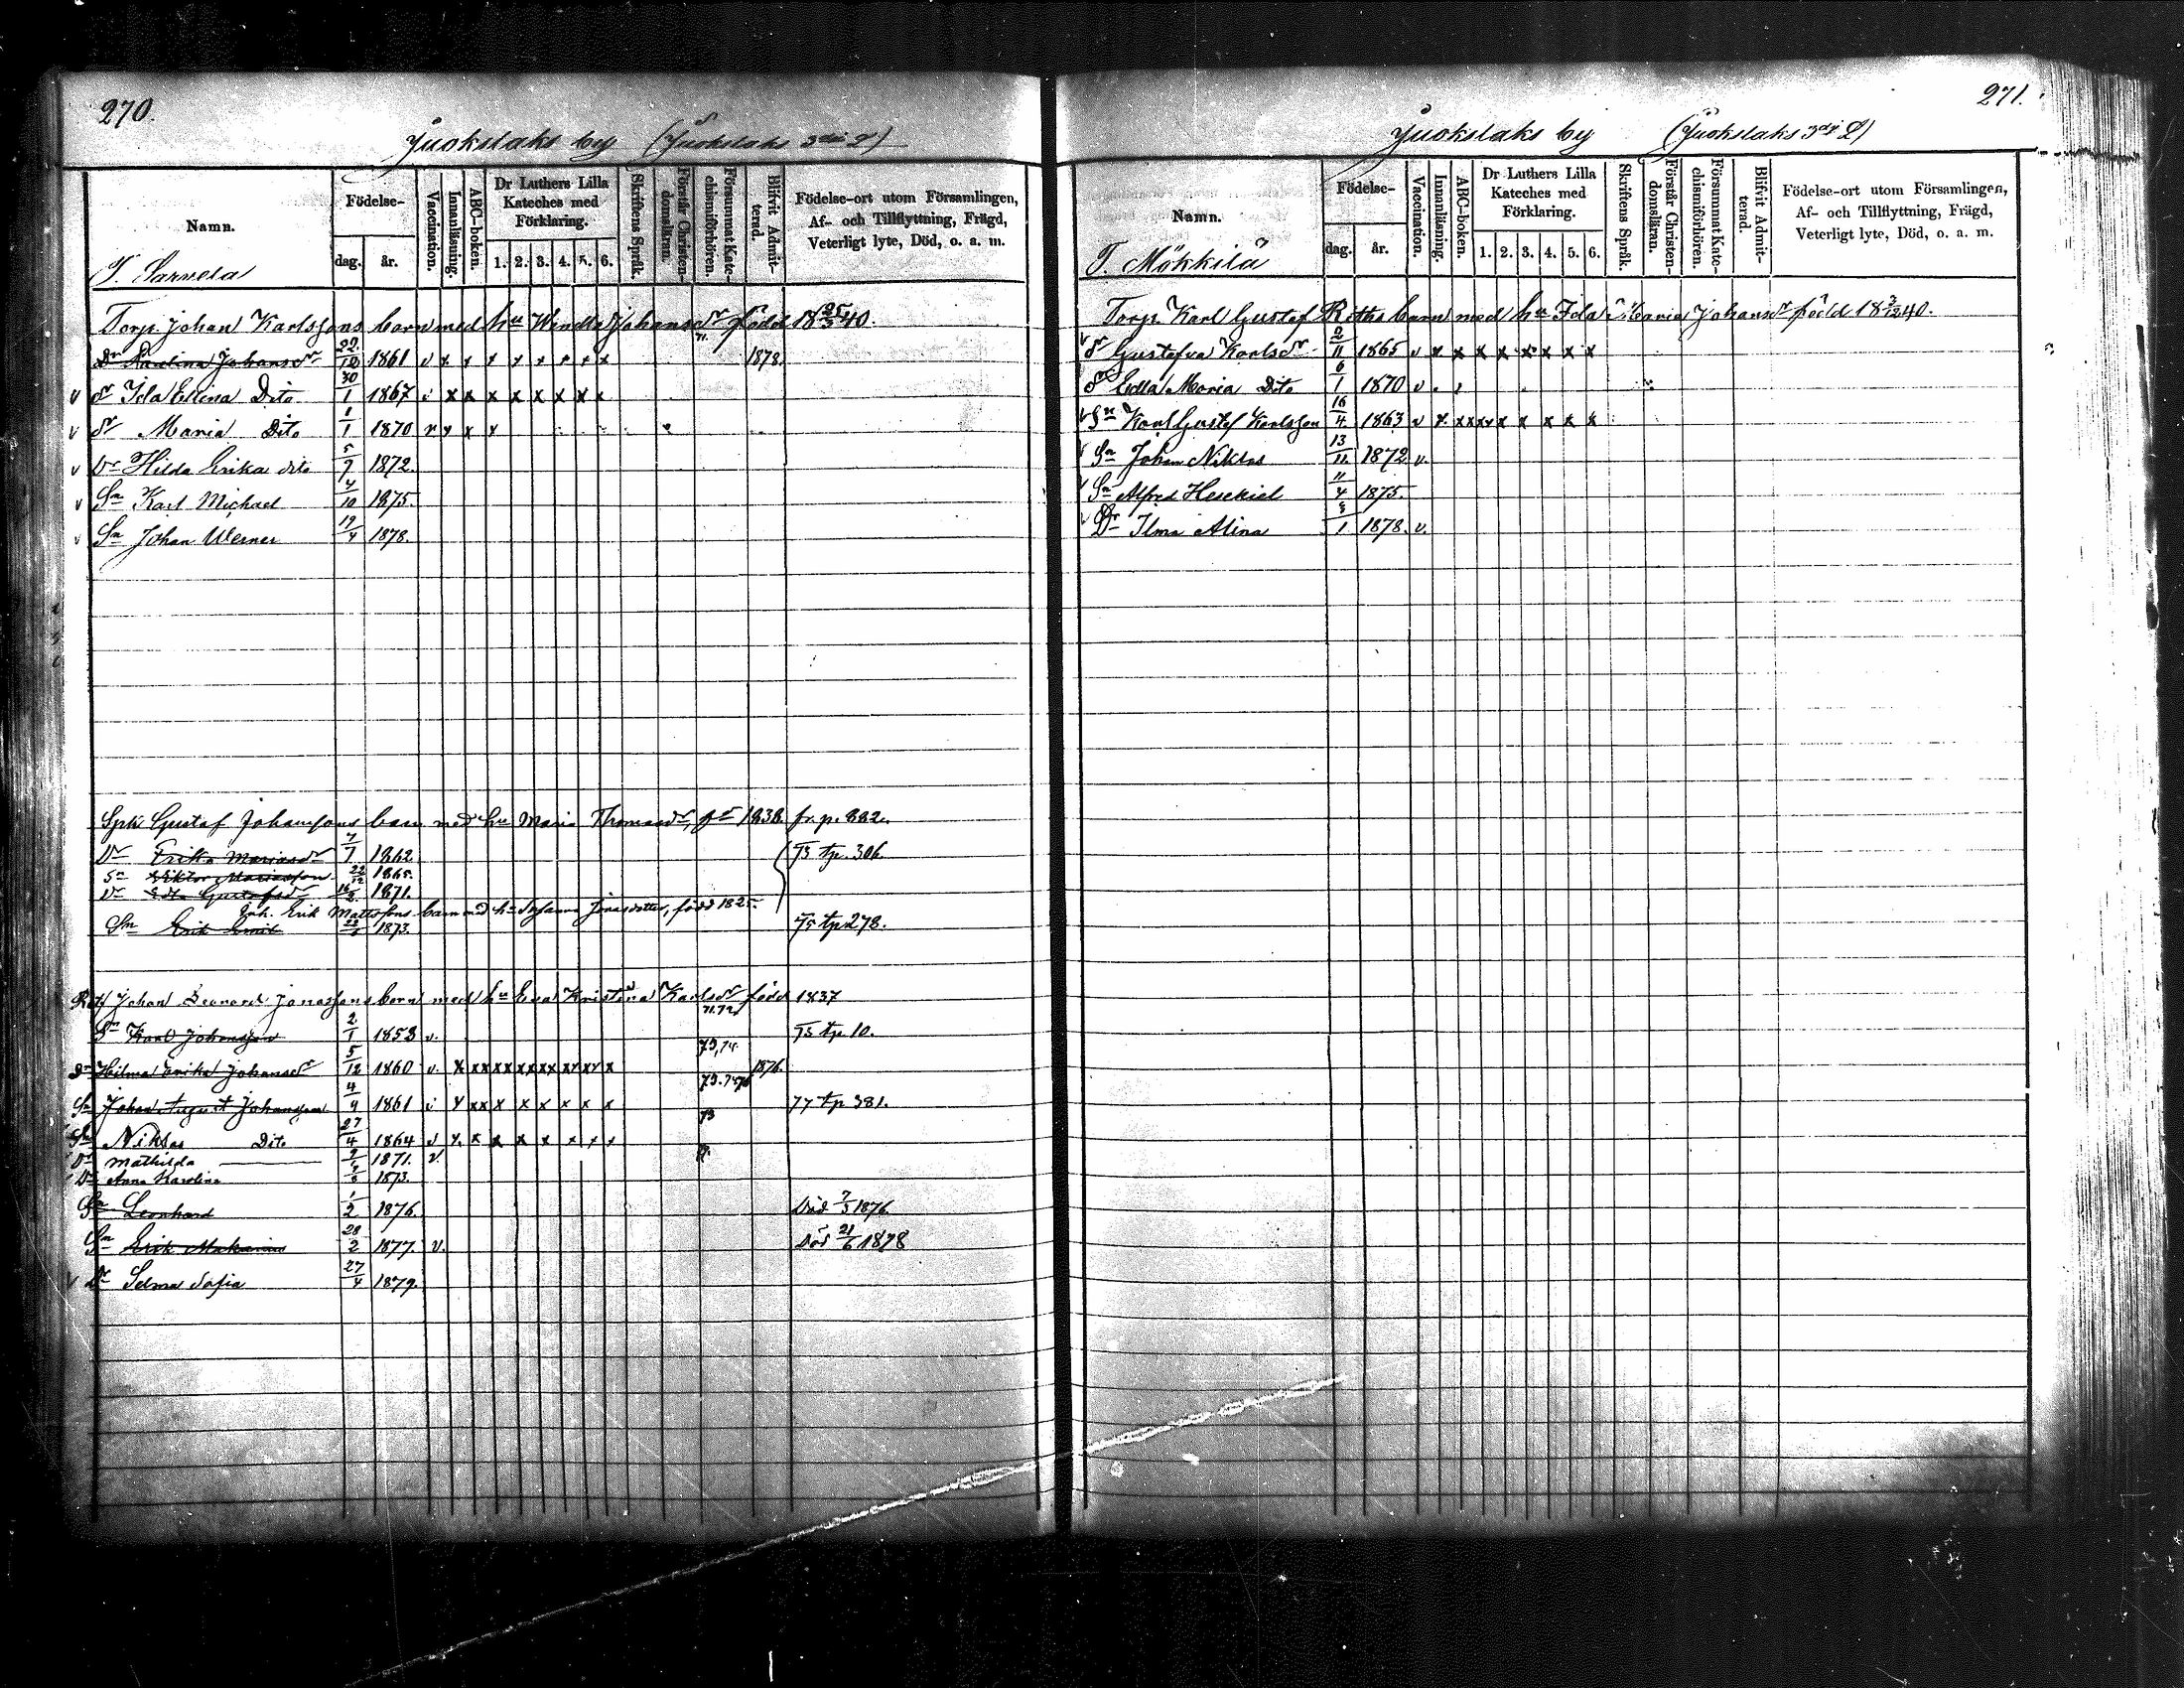 270.
Juokslaks by (Juokslaks 3die L)
Namn. Födelse- dag. år. Vaccination. Innanläsning. ABC-boken. Dr Luthers Lilla Kateches med Förklaring. 1. 2. 3. 4. 5. 6. Skriftens Språk. Förstår Christendomsläran. Försummat Katechismiförhören. Blifvit Admitterad. Födelse-ort utom Församlingen, Af- och Tillflyttning, Frägd, Veterligt lyte, Död, o. a. m.
T. Sarvela
Torp. Johan Karlssons barn med hu Wendla Johansdr född 18 25/5 40.
Dr Karolina Johansdr 22/12 1861 v x x x x x x x x 71. 1878.
dr Ida Elina Dito 30/1 1867 v x x x x x x x x
v dr Maria Dito 1/1 1870 v x x x
v Dr Hilda Erika dito 5/7 1872.
v Sn Karl Michael 4/10 1875.
v Sn Johan Werner 19/4 1878.
Gustaf Johanssons barn med hu Maria Thomasdr, fd 1838. fr. p. 882.
Dr Erika Mariasdr 7/7 1862 75 tp. 306.
Sn Viktor Mariasson 22/12 1865.
Dr Eda Gustafsdr 16/2 1871.
Inh. Erik Mattssons barn med hu Susanna Jonasdotter, född 1825.
Sn Erik Emil 1873. 75 tp 278.
Johan Leonard Jonassons barn med hu Eva Kristina Karlsdr född 1837
Sn Karl Johansson 2/1 1853 v. 71.72 75 tp 10.
Dr Hilma Erika Johansdr 5/12 1860 v. x xx xx xx xx xx xx x 73,74. 1876.
Sn Johan August Johansson 4/9 1861 v x xx x x x x x x 73.74 77 tp 381.
Sn Niklas Dito 27/4 1864 v x x x x x x x x 73
Dr Mathilda 1871. v.
Dr Anna Karolina 1873.
Sn Leonhard 1/2 1876 Död 7/3 1876
Sn Erik Makarius 28/2 1877. v. Död 21/6 1878
v Dr Selma Sofia 27/4 1879.
271.
Juokslaks by (Juokslaks 3die L)
Namn. Födelse- dag. år. Vaccination. Innanläsning. ABC-boken. Dr Luthers Lilla Kateches med Förklaring. 1. 2. 3. 4. 5. 6. Skriftens Språk. Förstår Christendomsläran. Försummat Katechismiförhören. Blifvit Admitterad. Födelse-ort utom Församlingen, Af- och Tillflyttning, Frägd, Veterligt lyte, Död, o. a. m.
T. Mökkilä
Torp. Karl Gustaf Riths barn med hu Ida Maria Johansdr född 18 3/12 40.
v dr Gustafva Karlsdr 2/11 1865 v x x x x x x x x
dr Edla Maria Dito 6/1 1870 v
v Sn Karl Gustaf Karlsson 16/4 1863 v x xx xx x x x x x
Sn Johan Niklas 13/11 1872 v.
Sn Alfred Hesekiel 11/4 1875.
v Dr Ilma Alina 1878. v.